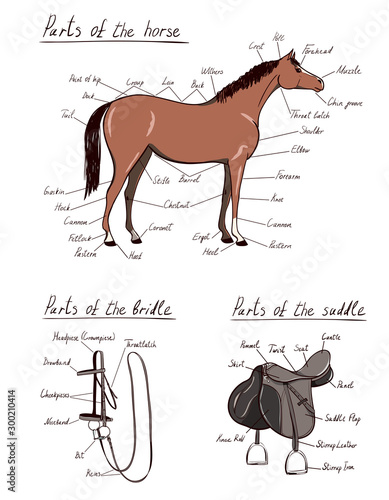 Parts of the horse
Poll
Crest
Forehead
Withers
Muzzle
Point of hip
Croup
Loin
Back
Dock
Chin groove
Tail
Throat latch
Shoulder
Elbow
Stifle
Barrel
Forearm
Gaskin
Hock
Chestnut
Knee
Cannon
Cannon
Fetlock
Coronet
Ergot
Pastern
Hoof
Heel
Pastern
Parts of the bridle
Headpiece (Crownpiece)
Throatlatch
Browband
Cheekpieces
Noseband
Bit
Reins
Parts of the saddle
Pommel
Twist
Seat
Cantle
Skirt
Panel
Saddle Flap
Knee Roll
Stirrup Leather
Stirrup Iron
Adobe Stock | #300210414